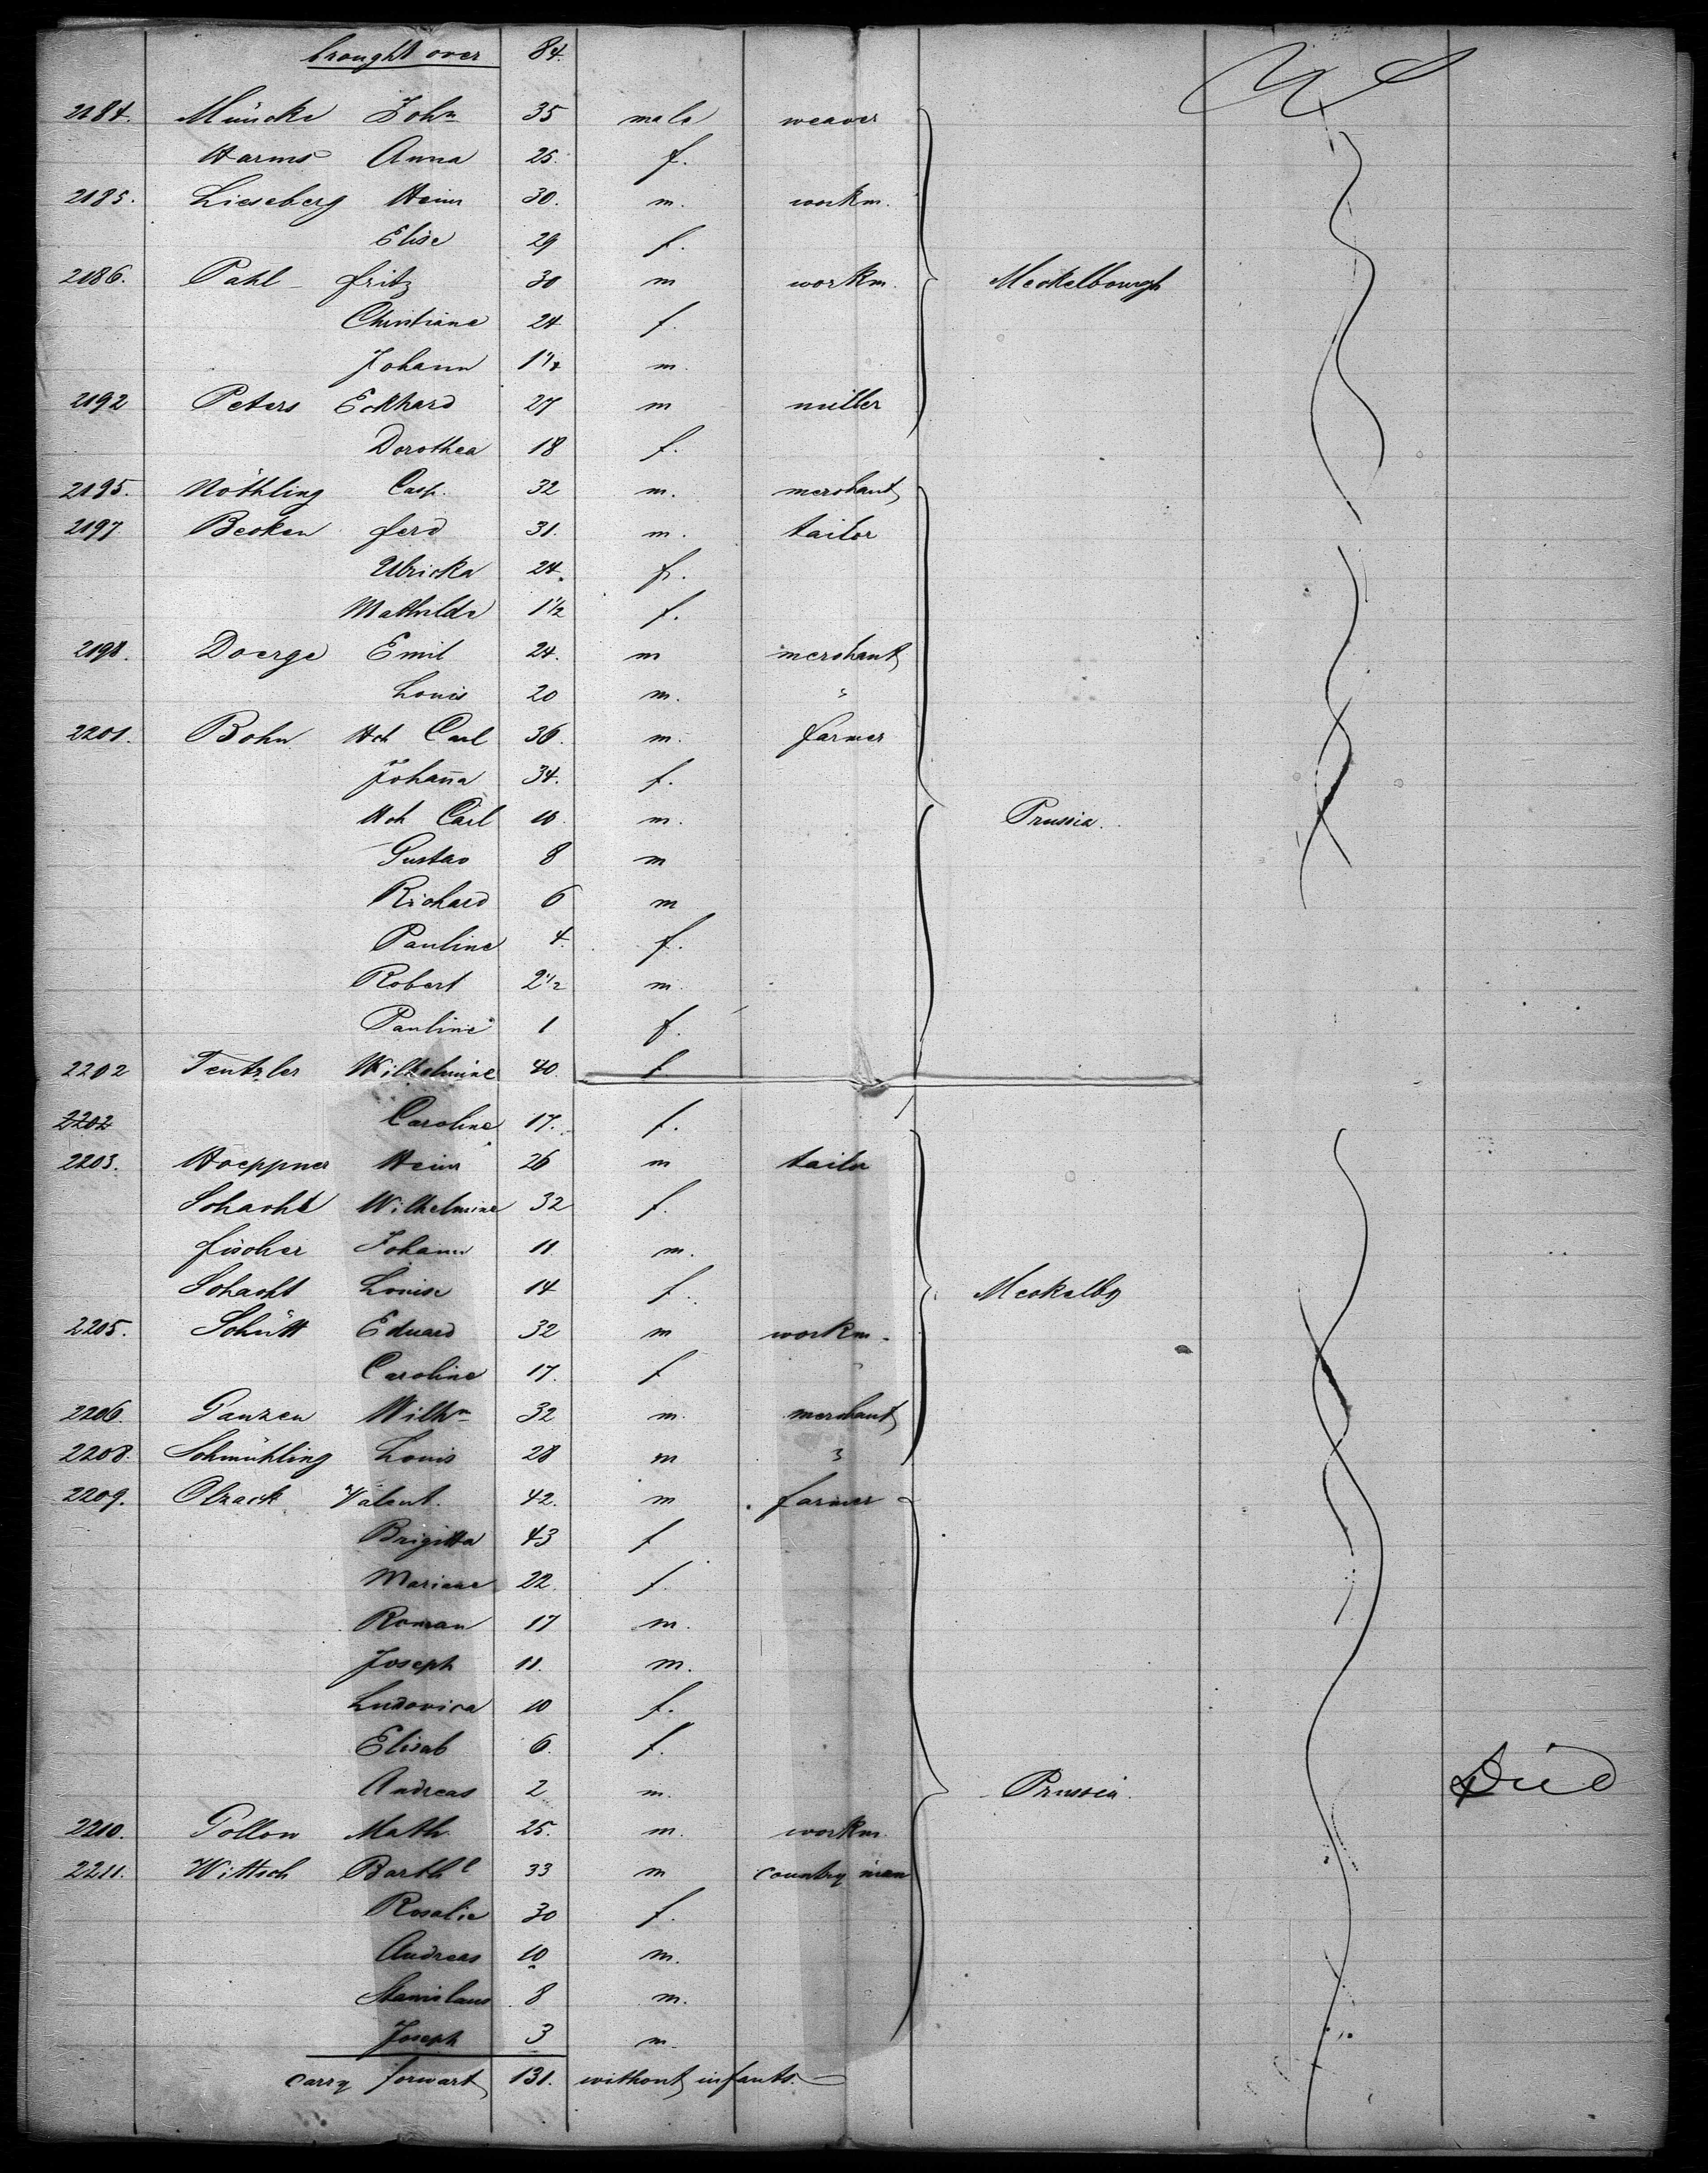 brought over 84.
U S
2184. Müncke John 35 male weaver
Harms Anna 25. f.
2185. Lieseberg Heinr 30. m. workm.
Elise 29 f.
2186. Pahl Fritz 30 m workm. Meckelbourgh
Christiane 24 f.
Johann 1 1/2 m.
2192 Peters Eckhard 27 m miller
Dorothea 18 f.
2195. Nöthling Casp. 32 m. merchant
2197. Becken Ferd 31. m. tailor
Ulricka 24. f.
Mathilde 1 1/2 f.
2198. Doerge Emil 24. m merchant
Louis 20 m. "
2201. Bohn Hch Carl 36. m. farmer
Johaña 34. f.
Hch Carl 10. m. Prussia.
Gustav 8 m
Richard 6 m
Pauline 4. f.
Robert 2 1/2 m.
Pauline 1 f.
2202 Tentzler Wilhelmine 40. f.
2202 Caroline 17. f.
2203. Hoeppner Heinr 26 m tailor
Schacht Wilhelmine 32 f.
Fischer Johann 11. m.
Schacht Louise 14 f. Meckelbg
2205. Schütt Eduard 32 m workm.
Caroline 17. f "
2206. Panzen Wilhm 32 m. merchant
2208. Schmühling Louis 28 m "
2209. Olzack Valent. 42. m farmer
Brigitta 43 f
Mariane 22. f.
Roman 17 m.
Joseph 11. m.
Ludovica 10 f.
Elisab 6. f.
Andreas 2 m. Prussia. Died
2210. Gollow Math. 25. m. workm.
2211. Wittsch Barthl 33 m country man
Rosalie 30 f.
Andreas 10 m.
Stanislaus 8 m.
Joseph 3 m.
carry forwart 131. without infants.